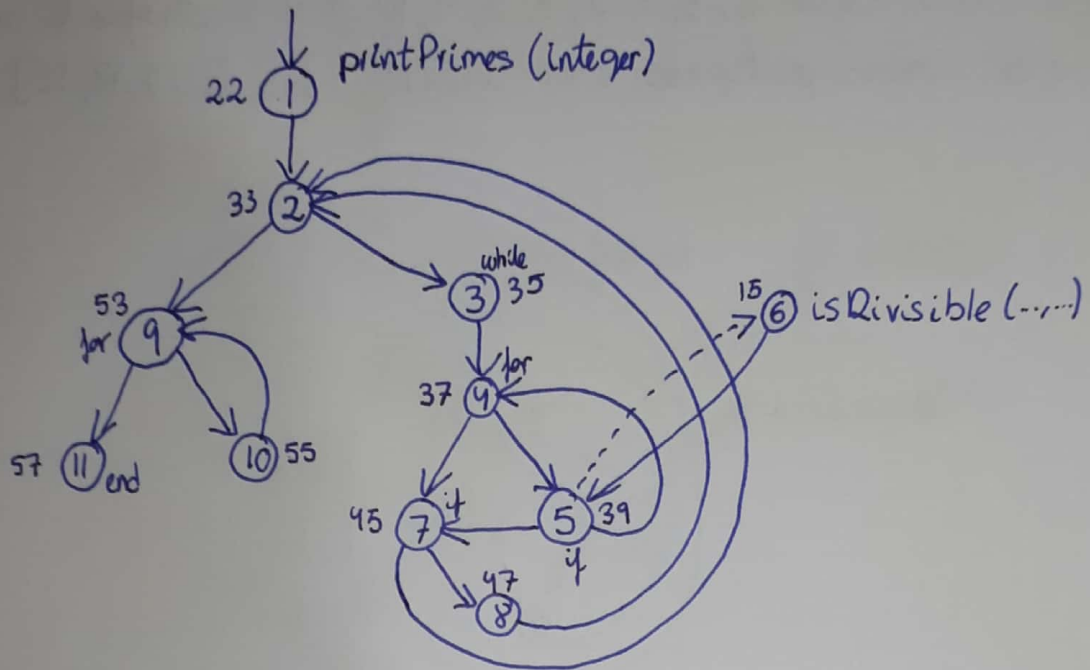 printPrimes (Integer)
22 1
33 2
while
3 35
15 6 isDivisible (..,..)
53
for 9
for
37 4
57 11 end
10 55
45 7 if
5 39
if
47
8